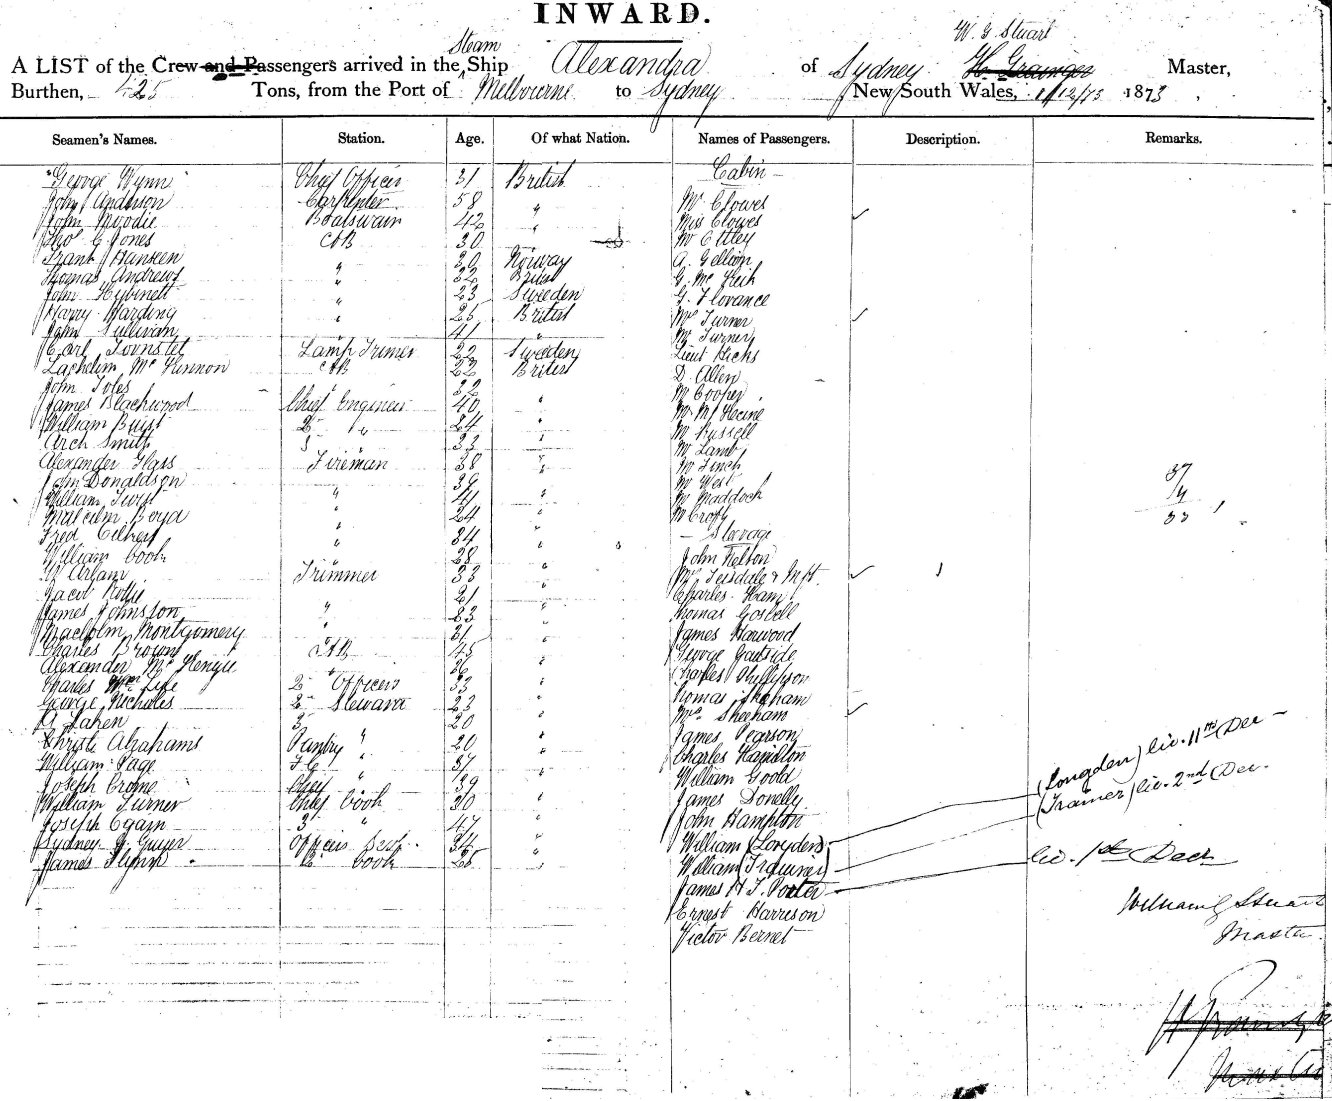 INWARD.
Steam
W. G. Stuart
A LIST of the Crew and Passengers arrived in the Ship Alexandra of Sydney H. Grainger Master,
Burthen, 425 Tons, from the Port of Melbourne to Sydney New South Wales, 1/12/73 1873
Seamen's Names. Station. Age. Of what Nation. Names of Passengers. Description. Remarks.
George Wynn Chief Officer 31 British Cabin
John Anderson Carpenter 58 " Mr Clowes
John Moodie Boatswain 42 " Miss Clowes
Thos C Jones AB 30 Mr Ettley
Frank Hanseen " 30 Norway A. Gellion
Thomas Andrews " 22 British G. Mc
John Hybinett " 23 Sweden G. Florance
Harry Harding " 25 British Mrs Turner
John Sullivan 41 " Mr Turner
Carl Lamp Trimer 22 Sweden Lieut Hicks
Lachelim McKinnon AB 22 British D. Allen
John Toles " 32 Mr Cooper
James Blackwood Chief Engineer 40 " Mr
William Buist 2 " 24 " Mr Russell
Arch Smith 3 33 " Mr Lamb
Alexander Glass Fireman 38 " Mr Finch
John Donaldson 39 Mr West 37
William " 41 " Mr Maddock
Malcolm Boyd " 24 Mr Croft 33
Fred Gilbert " 34 " Steerage
William Cook " 28 " John Nelson
Trimmer 33 " Mrs Teisdale & Inft
Jacob 21 " Charles Ham
James Johnston " 23 " Thomas Gosbell
Macholm Montgomery " 31 " James Harwood
Charles Brown AB 45 " George Gartside
Alexander " 36 " Charles Phillipson
Charles Fife 2 Officer 33 " Thomas
George Nicholes 2 Steward 23 " Mrs Sheeham
A Laken 3 " 20 James Pearson
Christi Abrahams Pantry " 20 " Charles Hamilton
William Page " 37 " William Goold
Joseph Crome Chief 39 James Donelly
William Turner Chief Cook 30 " John Hampton
Joseph Egain 3 " 47 " William (Longden) (Longden) liv. 11th Dec
Sydney G. Guyer Officers Serv. 34 " William (Traquiner) (Trainer) liv. 2nd Dec.
James Flynn 2 Cook 25 " James H. F. Porter liv. 1st Decr
Ernest Harrison
Victor Bernet
William G Stuart
Master